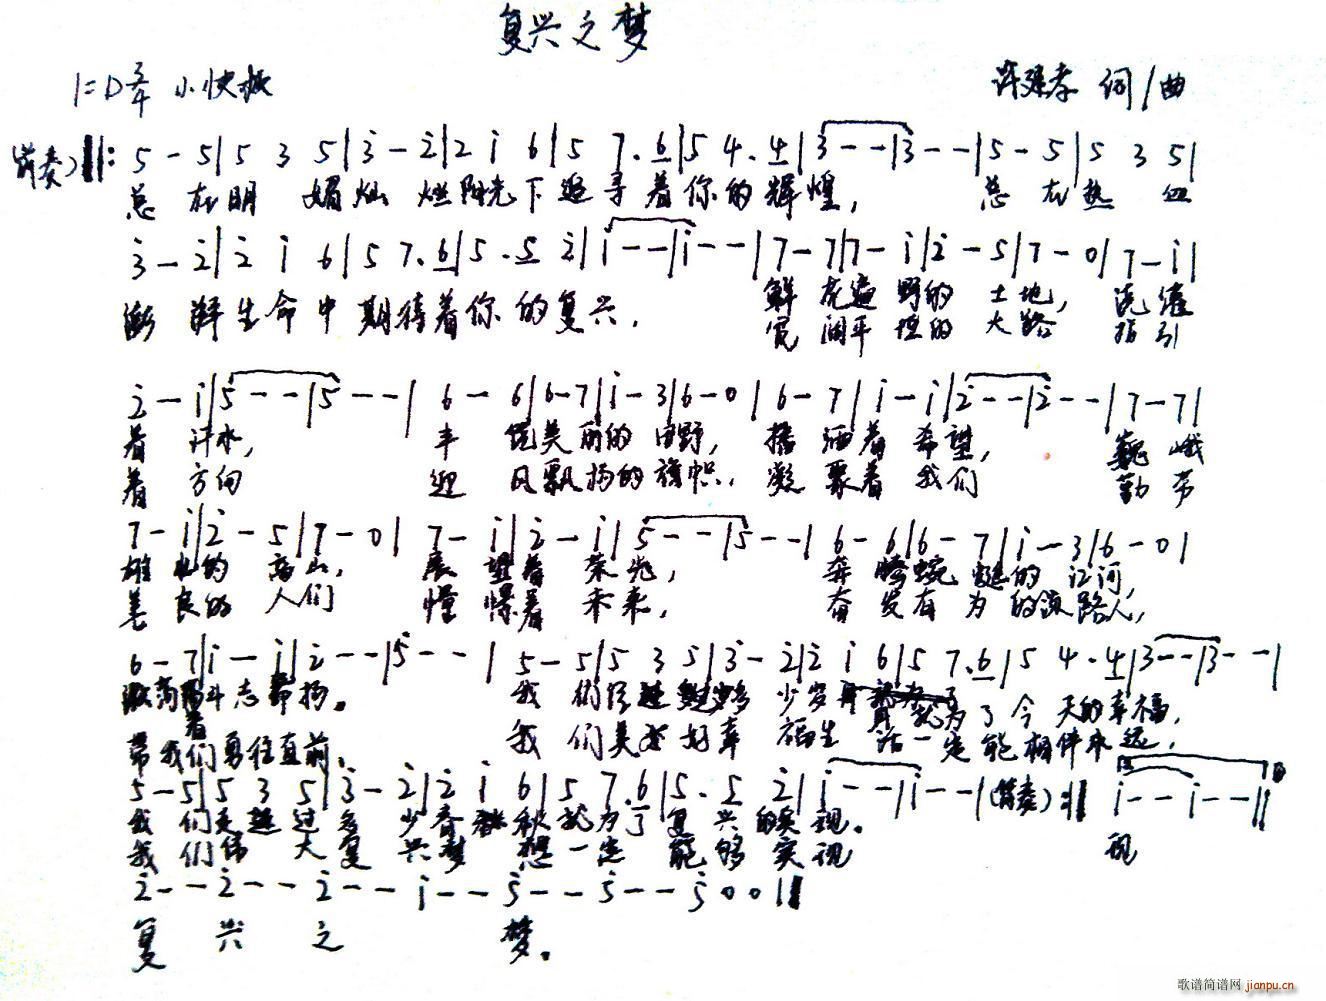 复兴之梦
1=D 3/4 小快板 许建孝 词/曲
(前奏)‖: 5 - 5|5 3 5|3̇ - 2̇|2̇ i 6|5 7.6|5 4.4|3 - -|3 - -|5 - 5|5 3 5|
总 在明 媚灿 烂阳光下追寻着你的辉煌, 总 在热 血
3̇ - 2̇|2̇ i 6|5 7.6|5.5 2̇|i - -|i - -|7 - 7|7 - i|2̇ - 5|7 - 0|7 - i|
澎 湃生命中期待着你的复兴. 鲜 花遍 野的 土地, 浇 灌
宽 阔平 坦的 大路 指 引
2̇ - i|5 - -|5 - -|6 - 6|6 - 7|i - 3|6 - 0|6 - 7|i - i|2̇ - -|2̇ - -|7 - 7|
着 汗水, 丰 饶美 丽的 田野, 播 洒着 希望, 巍 峨
着 方向 迎 风飘 扬的 旗帜, 凝 聚着 我们 勤 劳
7 - i|2̇ - 5|7 - 0|7 - i|2̇ - i|5 - -|5 - -|6 - 6|6 - 7|i - 3|6 - 0|
雄 壮的 高山, 展 望着 荣光, 奔 腾蜿 蜒的 江河,
善 良的 人们 憧 憬着 未来, 奋 发有 为 的领路人,
6 - 7|i - i|2̇ - -|5 - -|5 - 5|5 3 5|3̇ - 2̇|2̇ i 6|5 7.6|5 4.4|3 - -|3 - -|
激荡着斗志昂扬。 我 们经 多 少岁月 就为了今 天的幸福,
带 我们勇往直前、 我 们美 好幸 福生 活一定能相伴永远,
5 - 5|5 3 5|3̇ - 2̇|2̇ i 6|5 7.6|5.5 2̇|i - -|i - -|(前奏):‖ i - - i - -‖
我 们走 过 多 少春 秋就为了复兴 的实现。
我 们伟 大 复 兴梦 想一定能够 实现 现
2̇ - - 2̇ - - 2̇ - - i - - 5̇ - - 5̇ - - 5̇ 0 0‖
复 兴 之 梦。
歌谱简谱网 jianpu.cn